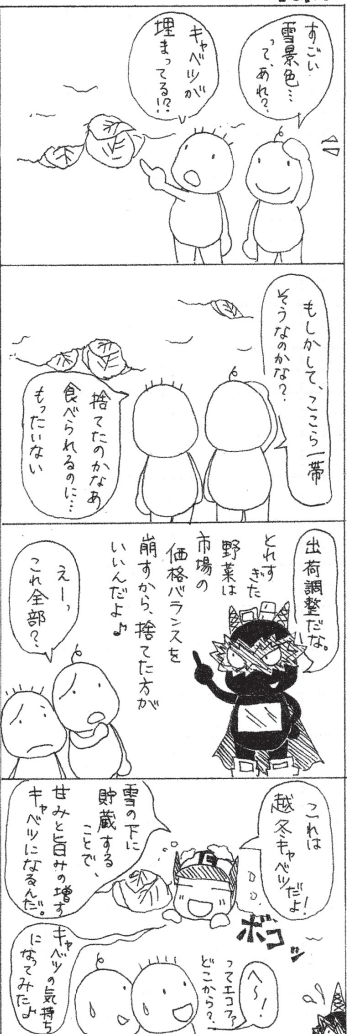 すごい
雪景色…
って、あれ？
キャベツが
埋まってる!?
もしかして、ここら一帯
そうなのかな？
捨てたのかなあ
食べられるのに…
もったいない
出荷調整だな。
とれす
ぎた
野菜は
市場の
価格バランスを
崩すから、捨てた方が
いいんだよ♪
えーっ、
これ全部？
これは
越冬キャベツだよ！
雪の下に
貯蔵する
ことで、
甘みと旨みの増す
キャベツになるんだ。
ボコッ
へ〜！
ってエコア？
どこから？
キャベツの気持ち
になってみたよ♪